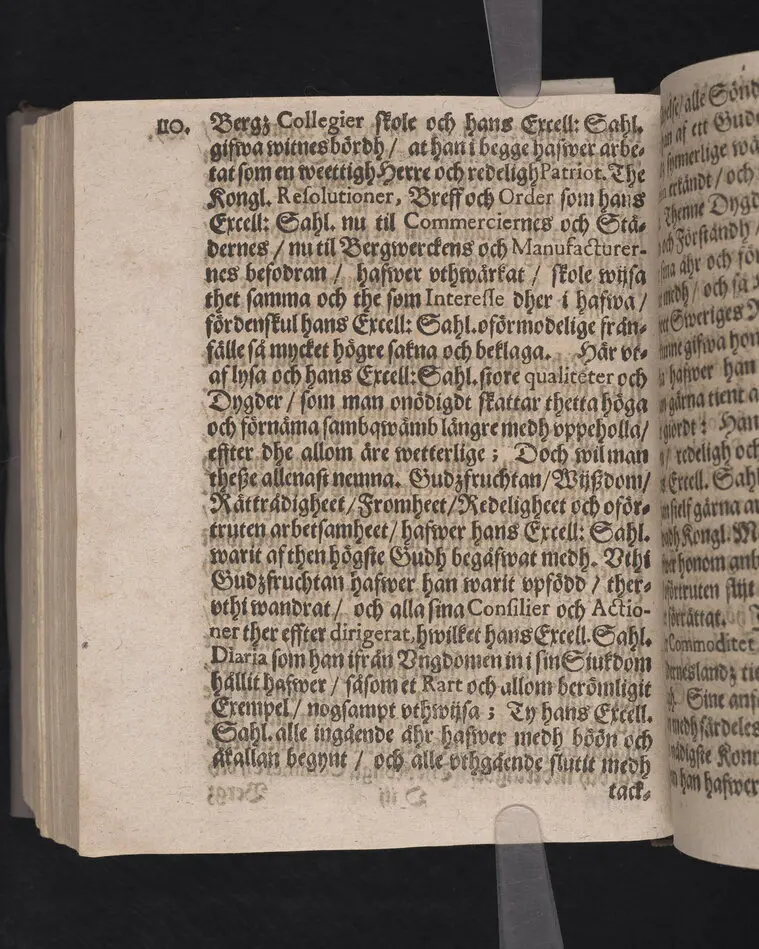 110. Bergz Collegier skole och hans Excell: Sahl.
gifwa witnesbördh / at han i begge hafwer arbe-
tat som en weettigh Herre och redeligh Patriot. The
Kongl. Resolutioner, Breff och Order som hans
Excell: Sahl. nu til Commerciernes och Stä-
dernes / nu til Bergwerckens och Manufacturer-
nes befodran / hafwer vthwärkat / skole wijsa
thet samma och the som Interesse dher i hafwa /
fördenskul hans Excell: Sahl. oförmodelige från-
fälle så mycket högre sakna och beklaga. Här vt-
af lysa och hans Excell: Sahl. store qualiteter och
Dygder / som man onödigdt skattar thetta höga
och förnäma sambqwämb längre medh vppeholla /
effter dhe allom äre wetterlige ; Doch wil man
theße allenast nemna. Gudzfruchtan / Wijßdom /
Rätträdigheet / Fromheet / Redeligheet och oför-
truten arbetsamheet / hafwer hans Excell: Sahl.
warit af then högste Gudh begåfwat medh. Vthi
Gudzfruchtan hafwer han warit vpfödd / ther-
vthi wandrat / och alla sina Consilier och Actio-
ner ther effter dirigerat, hwilket hans Excell. Sahl.
Diaria som han ifrån Vngdomen in i sin Siukdom
hållit hafwer / såsom et Rart och allom berömligit
Exempel / nogsampt vthwijsa ; Ty hans Excell.
Sahl. alle ingående åhr hafwer medh böön och
åkallan begynt / och alle vthgående slutit medh
tack-
pelse / alle
af ett Gud
och Förståndh /
åhr och för
medh / och så
Sweriges
gifwa hon
hafwer han
gärna tient a
giordt : Han
redeligh och
Excell. Sahl
sielf gärna
Kongl. M
honom anb
Commoditet
Sine anf
medh särdeles
Kon
han hafwer